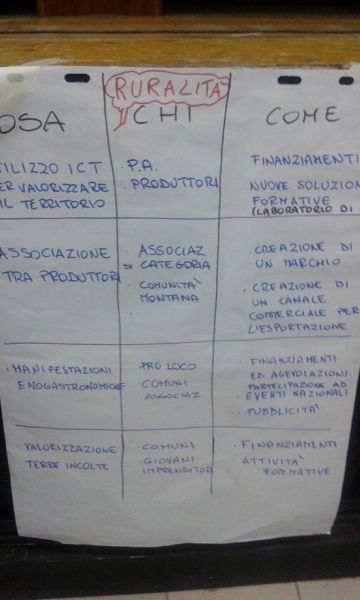 RURALITÀ
OSA CHI COME
TILIZZO ICT
ER VALORIZZARE
IL TERRITORIO
· P.A.
· PRODUTTORI
FINANZIAMENTI
NUOVE SOLUZION
FORMATIVE
(LABORATORIO DI
ASSOCIAZIONE
TRA PRODUTTORI
· ASSOCIAZ
DI CATEGORIA
· COMUNITA'
MONTANA
· CREAZIONE DI
UN MARCHIO
· CREAZIONE DI
UN CANALE
COMMERCIALE PER
L'ESPORTAZIONE
· MANIFESTAZIONI
ENOGASTRONOMICHE
PRO LOCO
· COMUNI
· ASSOCIAZ.
· FINANZIAMENTI
ED AGEVOLAZIONI
PARTECIPAZIONE AD
EVENTI NAZIONALI
· PUBBLICITA'
· VALORIZZAZIONE
TERRE INCOLTE
· COMUNI
· GIOVANI
IMPRENDITORI
· FINANZIAMENTI
· ATTIVITA'
FORMATIVE